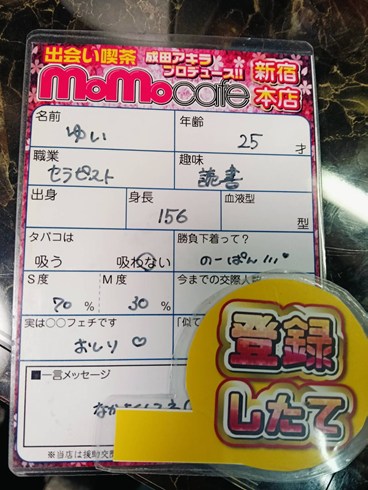 出会い喫茶 成田アキラ
プロデュース!!
MoMocafe 新宿
本店
名前 年齢
ゆい 25 才
職業 趣味
セラピスト 読書
出身 身長 血液型
156 型
タバコは 勝負下着って?
吸う 吸わない のーぱん!!!
S度 M度 今までの交際人
70 % 30 %
実は○○フェチです 「似て
おしり♡
■一言メッセージ
なかよくしてね
※当店は援助交際
登録
したて